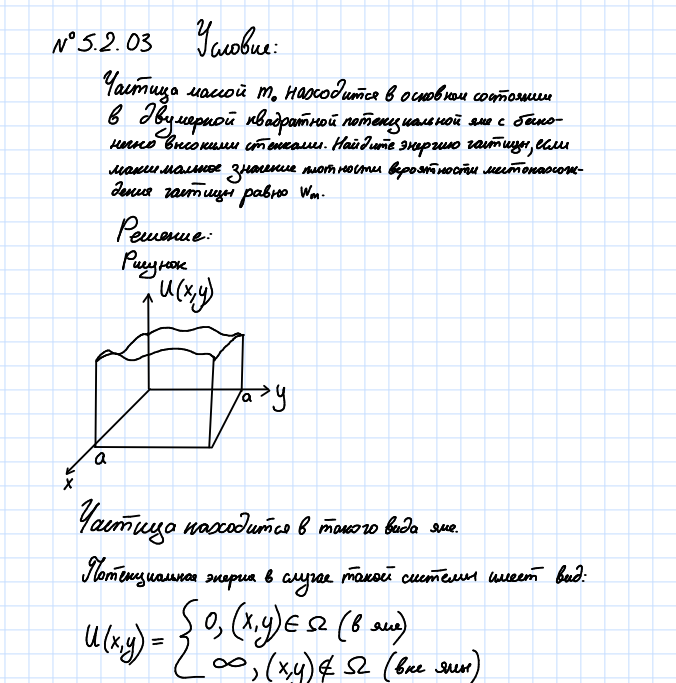 N° 5.2.03 Условие:
Частица массой m₀ находится в основном состоянии
в двумерной квадратной потенциальной яме с беско-
нечно высокими стенками. Найдите энергию частицы, если
максимальное значение плотности вероятности местонахож-
дения частицы равно Wₘ.
Решение:
Рисунок
U(x,y)
a
y
a
x
Частица находится в такого вида яме.
Потенциальная энергия в случае такой системы имеет вид:
U(x,y) = { 0, (x,y) ∈ Ω (в яме)
∞, (x,y) ∉ Ω (вне ямы)